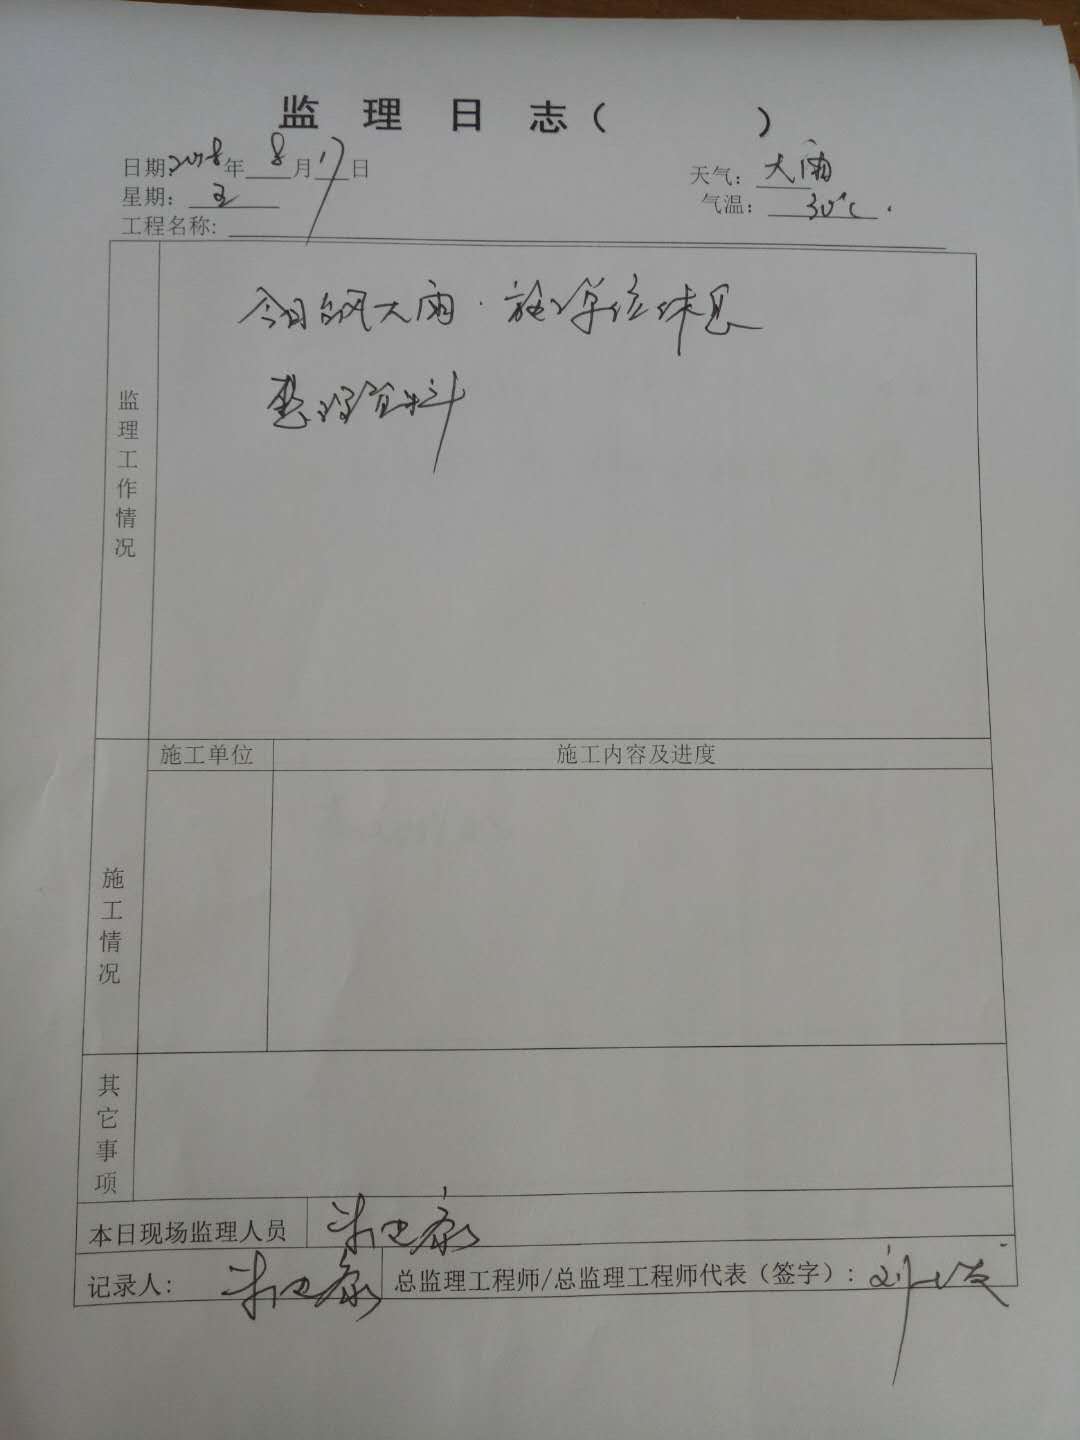 监 理 日 志（ ）
日期：2018年 8 月 17 日 天气： 大雨
星期： 五 气温： 30℃.
工程名称:
监理工作情况
今日台风大雨.施工单位休息
整理资料
施工单位 施工内容及进度
施工情况
其它事项
本日现场监理人员
记录人: 总监理工程师/总监理工程师代表（签字）: 刘